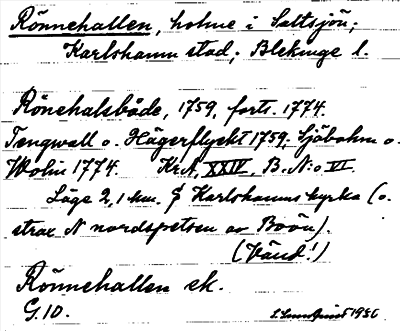 Rönnehallen, holme i Saltsjön;
Karlshamn stad; Blekinge l.
Rönehalsbåde, 1759, forts. 1774.
Tengwall o. Hägerflyckt 1759, Sjöbohm o.
Wolin 1774. KrA XXIV, B. N:o VI.
Läge 2,1 km. S Karlshamns kyrka (o.
strax N nordspetsen av Boön).
(Vänd!)
Rönnehallen ek.
G.10. 1936